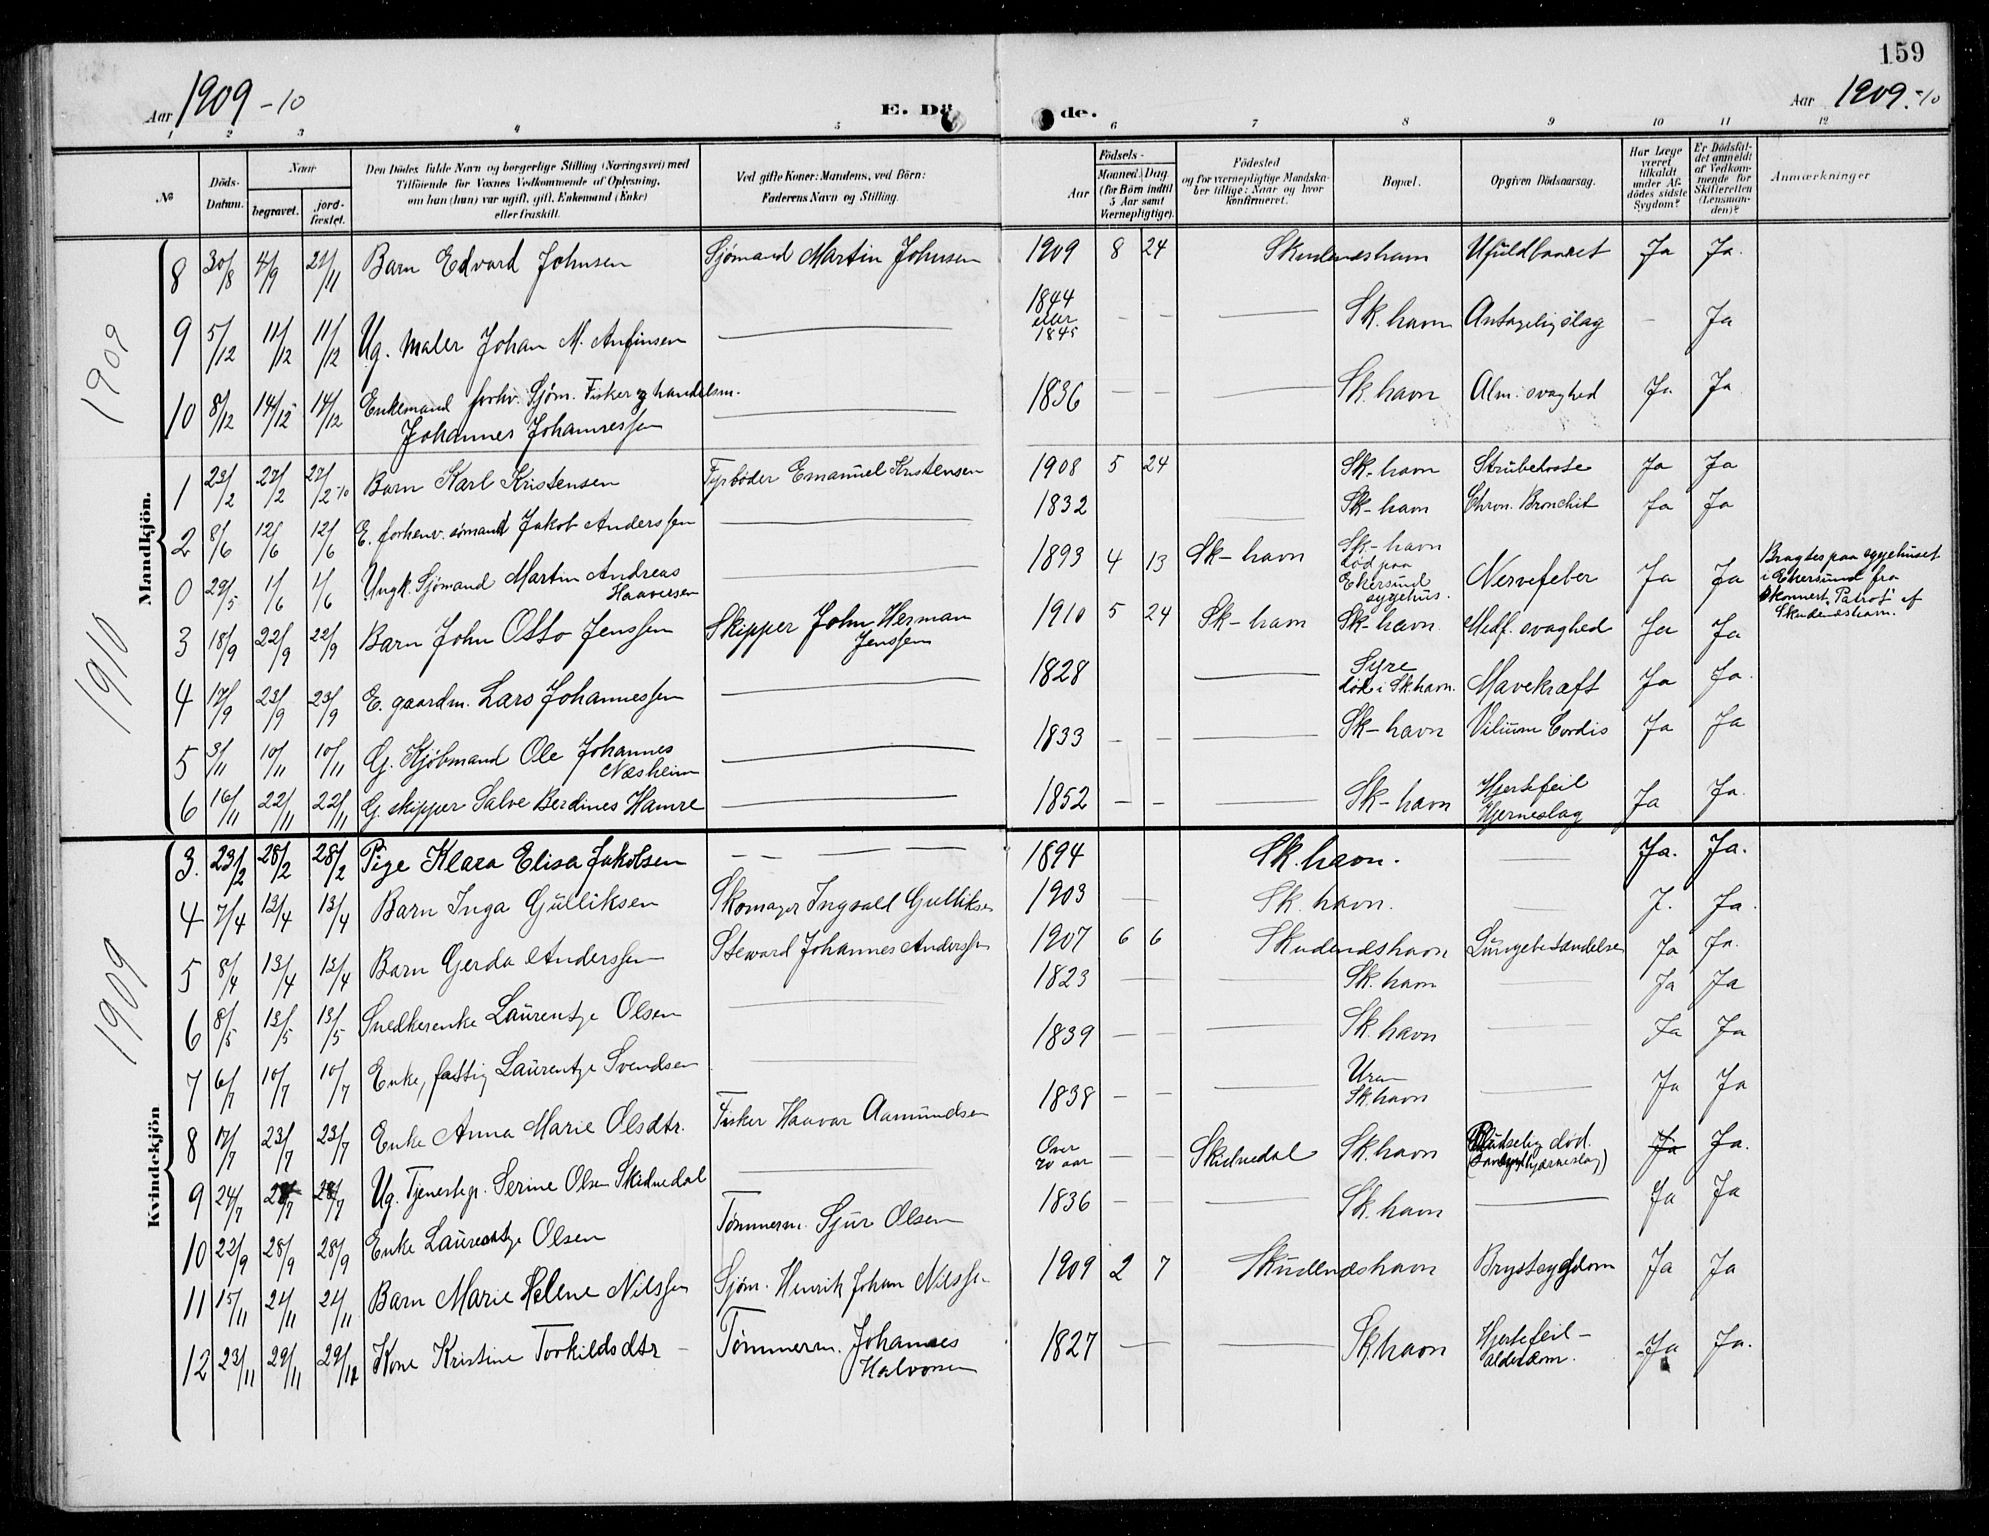 159
Aar 1909 -10
E. Dö de.
Aar 1909.-10
1 2 3 4 5 6 7 8 9 10 11 12
№
Döds-Datum.
Naar
begravet.
jord-fæstet.
Den Dödes fulde Navn og borgerlige Stilling (Næringsvei) med
Tilföiende for Voxnes Vedkommende af Oplysning,
om han (hun) var ugift, gift, Enkemand (Enke)
eller fraskilt.
Ved gifte Koner: Mandens, ved Börn:
Faderens Navn og Stilling.
Födsels-
Aar
Maaned. Dag.
(for Börn indtil
5 Aar samt
Værnepligtige).
Födested
og for værnepligtige Mandska-
ber tillige: Naar og hvor
konfirmeret.
Bopæl.
Opgiven Dödsaarsag.
Har Læge
været
tilkaldt
under Af-
dödes sidste
Sygdom?
Er Dödsfal-
det anmeldt
af Vedkom-
mende for
Skifteretten
(Lensman-
den)?
Anmærkninger
Mandkjön.
1909
8 30/8 4/9 21/11 Barn Edvard Johnsen Sjømand Martin Johnsen 1909 8 24 Skudeneshavn Ufuldbaaret Ja Ja.
9 5/12 11/12 11/12 Ug. Maler Johan M. Anfinsen — 1844 eller 1845 — — — Sk. havn Antagelig slag — Ja
10 8/12 14/12 14/12 Enkemand forhv. Sjøm. Fisker og handelsm.
Johannes Johannessen — 1836 — — — Sk. havn Alm. svaghed Ja Ja
1910
1 23/2 27/2 27/2 10 Barn Karl Kristensen Fyrbøder Emanuel Kristensen 1908 5 24 Sk-havn Strubehoste Ja Ja
2 8/6 12/6 12/6 E. forhenv. sømand Jakob Anderssen — 1832 — Sk-havn Chron. Bronchit Ja Ja
0 29/5 1/6 1/6 Ungk. Sjømand Martin Andreas
Haavesen — 1893 4 13 Sk-havn Sk-havn
død paa
Ekersund
sygehus. Nervefeber Ja Ja Bragtes paa sygehuset
i Ekersund fra
Skonnert "Patriot" af
Skudeneshavn.
3 18/9 22/9 22/9 Barn John Otto Jenssen Skipper John Herman
Jenssen 1910 5 24 Sk-havn Sk-havn Medf. svaghed Ja Ja
4 17/9 23/9 23/9 E. gaardm. Lars Johannessen — 1828 — Syre
død i Sk.havn. Mavekræft Ja Ja.
5 3/11 10/11 10/11 G. Kjøbmand Ole Johannes
Næsheim — 1833 — — — Sk-havn Vitium Cordis Ja Ja
6 16/11 22/11 22/11 G. skipper Salve Berdines Hamre — 1852 — — — Sk-havn Hjertefeil
Hjerneslag Ja Ja.
Kvindekjön
1909
3. 23/2 28/2 28/2 Pige Klara Elisa Jakobsen — — — — 1894 Sk. havn. — Ja. Ja.
4 7/4 13/4 13/4 Barn Inga Gulliksen Skomager Ingvald Gulliksen 1903 — Sk. havn. — J. Ja.
5 8/4 13/4 13/4 Barn Gerda Anderssen Steward Johannes Anderssen 1907 6 6 Skudeneshavn Lungebetændelse Ja Ja.
6 8/5 13/5 13/5 Snedkerenke Laurentze Olsen — 1823 — — — Sk. havn — Ja Ja
7 6/7 10/7 10/7 Enke, fattig Laurentze Svendsen — 1839 — — — Sk. havn — Ja Ja
8 17/7 23/7 23/7 Enke Anna Marie Olsdtr. Fisker Haavar Aamundsen 1838 — — — Uren
Sk. havn — Ja Ja
9 24/7 28/7 28/7 Ug. Tjenestep. Serine Olsen Skidnedal — Over
70 aar — — Skidnedal Sk. havn Pludselig død.
hjærneslag) Ja Ja.
10 22/9 28/9 28/9 Enke Laurentze Olsen Tømmerm. Sjur Olsen 1836 — — — Sk. havn — Ja Ja
11 15/11 21/11 21/11 Barn Marie Helene Nilssen Sjøm. Henrik Johan Nilssen 1909 2 7 Skudeneshavn Brystsygdom Ja Ja
12 23/11 29/11 29/11 Kone Kristine Torkildsdtr — Tømmerm. Johannes
Halvorsen 1827 — — Sk.havn Hjertefeil —
alderdom. Ja Ja.